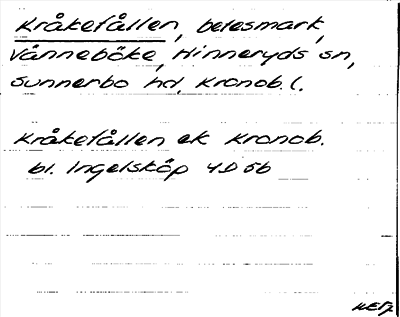 Kråkefållen, betesmark,
Vånneböke, Hinneryds sn,
Sunnerbo hd, Kronob. l.
Kråkefållen ek Kronob.
bl. Ingelsköp 4D 5b